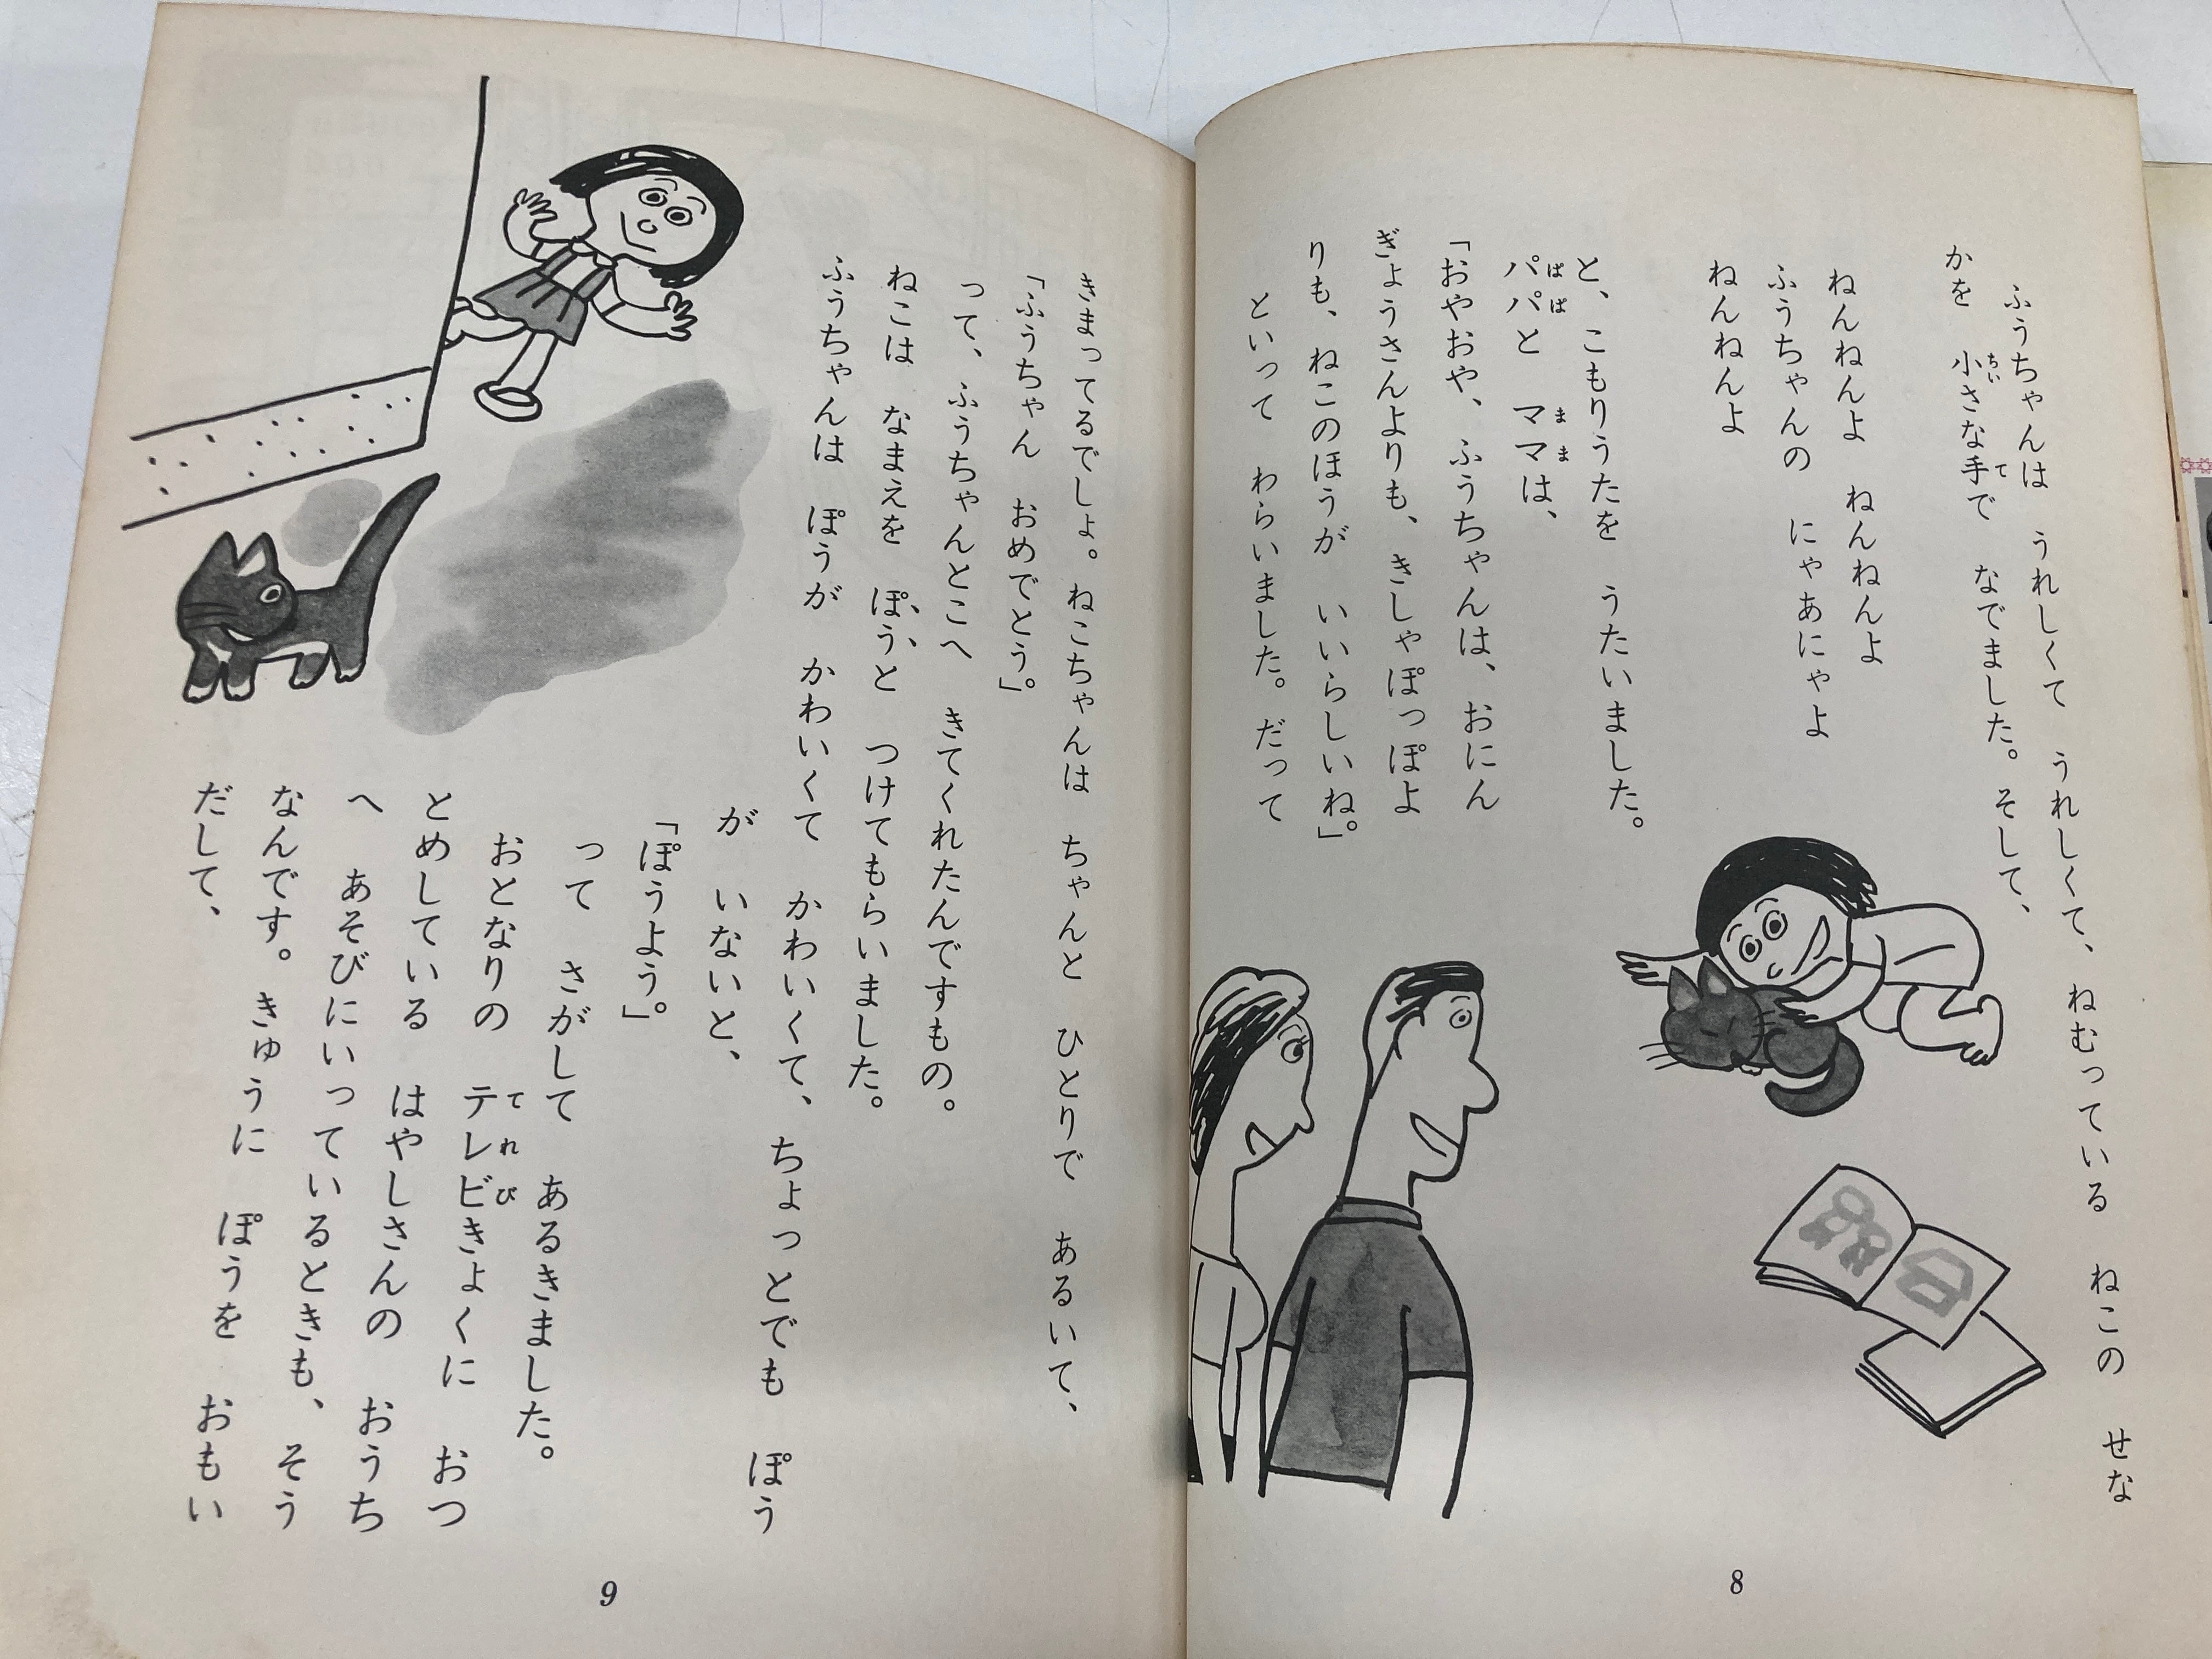 ふうちゃんは　うれしくて　うれしくて、ねむっている　ねこの　せな
かを　小さな手で　なでました。そして、
ねんねんよ　ねんねんよ
ふうちゃんの　にゃあにゃよ
ねんねんよ
と、こもりうたを　うたいました。
パパと　ママは、
「おやおや、ふうちゃんは、おにん
ぎょうさんよりも、きしゃぽっぽよ
りも、ねこのほうが　いいらしいね。」
といって　わらいました。だって
8
きまってるでしょ。ねこちゃんは　ちゃんと　ひとりで　あるいて、
「ふうちゃん　おめでとう。」
って、ふうちゃんとこへ　きてくれたんですもの。
ねこは　なまえを　ぽうと　つけてもらいました。
ふうちゃんは　ぽうが　かわいくて　かわいくて、ちょっとでも　ぽう
が　いないと、
「ぽうよう。」
って　さがして　あるきました。
おとなりの　テレビきょくに　おつ
とめしている　はやしさんの　おうち
へ　あそびにいっているときも、そう
なんです。きゅうに　ぽうを　おもい
だして、
9